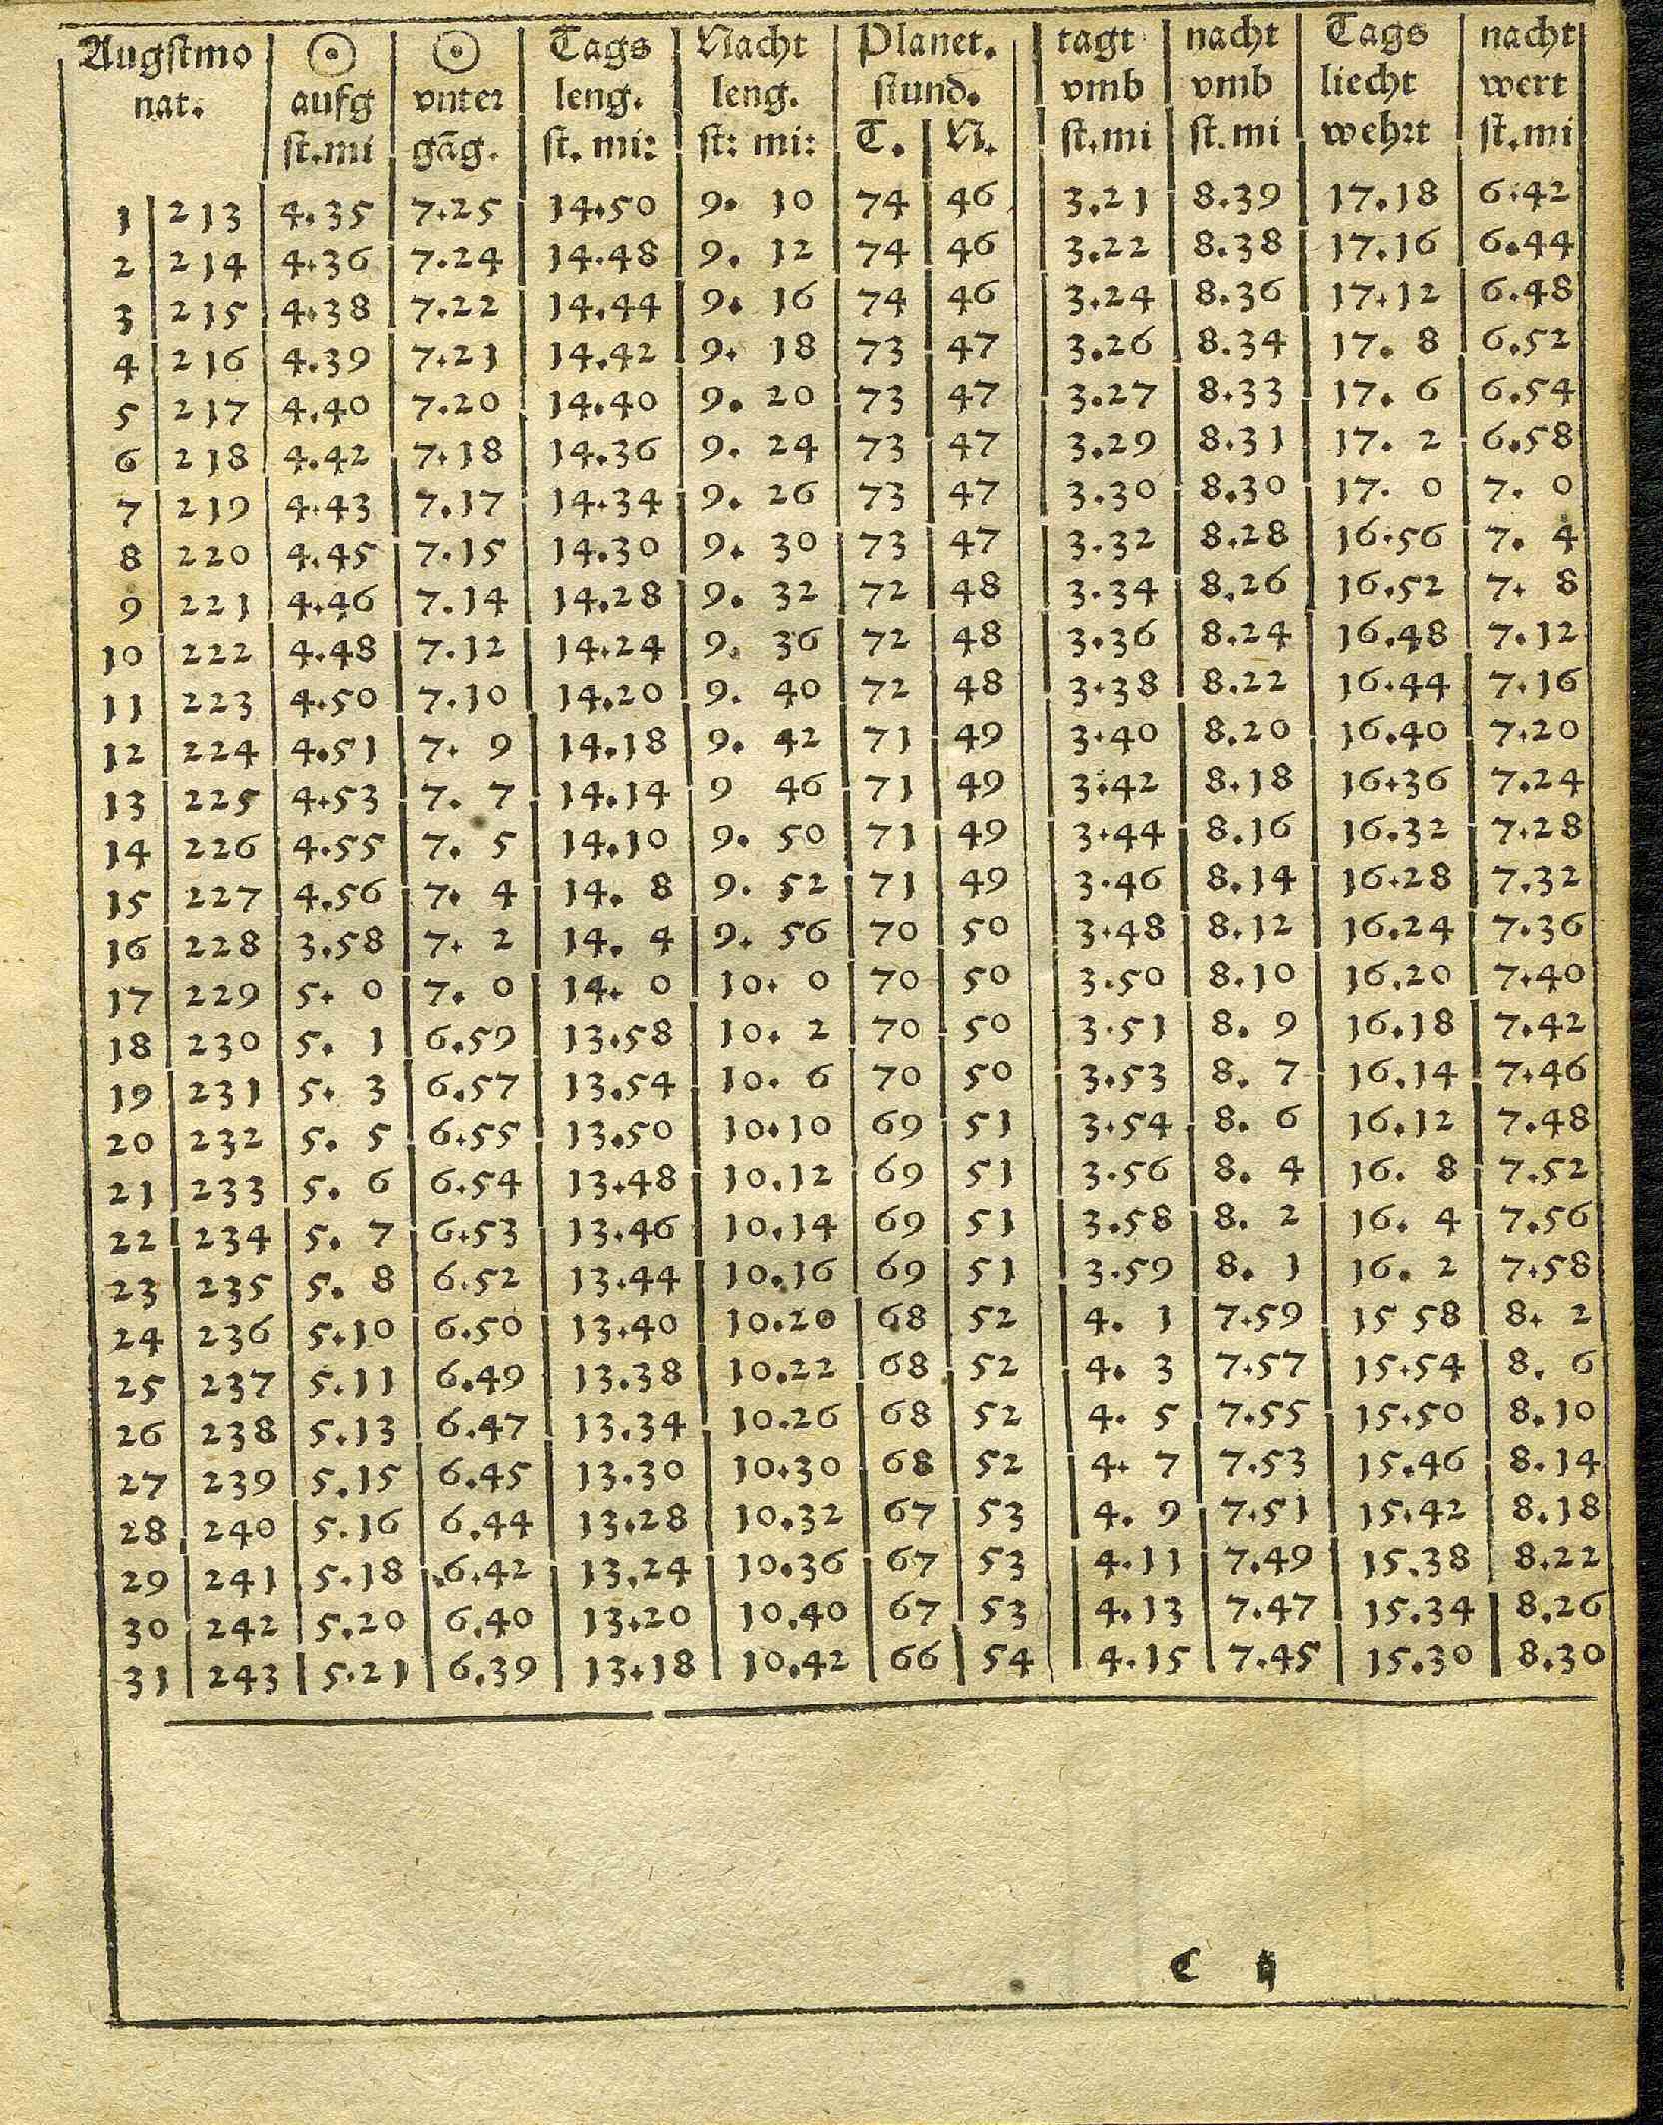 Augstmo ☉ ☉ Tags Nacht Planet. tagt nacht Tags nacht
nat. aufg vnter leng. leng. stund. vmb vmb liecht wert
st.mi gãg. st. mi: st: mi: T. N. st.mi st.mi wehrt st.mi
1 213 4.35 7.25 14.50 9. 10 74 46 3.21 8.39 17.18 6.42
2 214 4.36 7.24 14.48 9. 12 74 46 3.22 8.38 17.16 6.44
3 215 4.38 7.22 14.44 9. 16 74 46 3.24 8.36 17.12 6.48
4 216 4.39 7.21 14.42 9. 18 73 47 3.26 8.34 17. 8 6.52
5 217 4.40 7.20 14.40 9. 20 73 47 3.27 8.33 17. 6 6.54
6 218 4.42 7.18 14.36 9. 24 73 47 3.29 8.31 17. 2 6.58
7 219 4.43 7.17 14.34 9. 26 73 47 3.30 8.30 17. 0 7. 0
8 220 4.45 7.15 14.30 9. 30 73 47 3.32 8.28 16.56 7. 4
9 221 4.46 7.14 14.28 9. 32 72 48 3.34 8.26 16.52 7. 8
10 222 4.48 7.12 14.24 9. 36 72 48 3.36 8.24 16.48 7.12
11 223 4.50 7.10 14.20 9. 40 72 48 3.38 8.22 16.44 7.16
12 224 4.51 7. 9 14.18 9. 42 71 49 3.40 8.20 16.40 7.20
13 225 4.53 7. 7 14.14 9 46 71 49 3.42 8.18 16.36 7.24
14 226 4.55 7. 5 14.10 9. 50 71 49 3.44 8.16 16.32 7.28
15 227 4.56 7. 4 14. 8 9. 52 71 49 3.46 8.14 16.28 7.32
16 228 3.58 7. 2 14. 4 9. 56 70 50 3.48 8.12 16.24 7.36
17 229 5. 0 7. 0 14. 0 10. 0 70 50 3.50 8.10 16.20 7.40
18 230 5. 1 6.59 13.58 10. 2 70 50 3.51 8. 9 16.18 7.42
19 231 5. 3 6.57 13.54 10. 6 70 50 3.53 8. 7 16.14 7.46
20 232 5. 5 6.55 13.50 10.10 69 51 3.54 8. 6 16.12 7.48
21 233 5. 6 6.54 13.48 10.12 69 51 3.56 8. 4 16. 8 7.52
22 234 5. 7 6.53 13.46 10.14 69 51 3.58 8. 2 16. 4 7.56
23 235 5. 8 6.52 13.44 10.16 69 51 3.59 8. 1 16. 2 7.58
24 236 5.10 6.50 13.40 10.20 68 52 4. 1 7.59 15 58 8. 2
25 237 5.11 6.49 13.38 10.22 68 52 4. 3 7.57 15.54 8. 6
26 238 5.13 6.47 13.34 10.26 68 52 4. 5 7.55 15.50 8.10
27 239 5.15 6.45 13.30 10.30 68 52 4. 7 7.53 15.46 8.14
28 240 5.16 6.44 13.28 10.32 67 53 4. 9 7.51 15.42 8.18
29 241 5.18 6.42 13.24 10.36 67 53 4.11 7.49 15.38 8.22
30 242 5.20 6.40 13.20 10.40 67 53 4.13 7.47 15.34 8.26
31 243 5.21 6.39 13.18 10.42 66 54 4.15 7.45 15.30 8.30
C